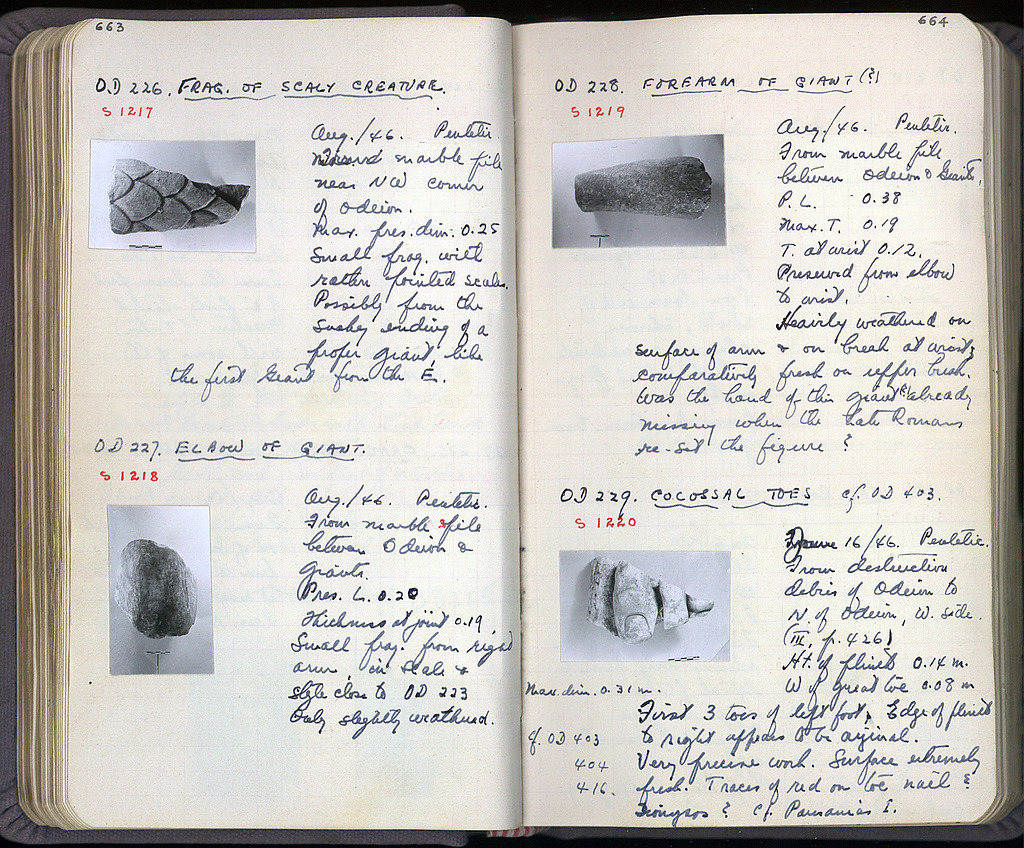 663
OD 226. FRAG. OF SCALY CREATURE.
S 1217
Aug./46. Pentelic.
marble pile
near NW corner
of Odeion.
Max. pres. dim. 0.25
Small frag. with
rather pointed scales.
Possibly from the
snakey ending of a
proper giant, like
the first Giant from the E.
OD 227. ELBOW OF GIANT.
S 1218
Aug./46. Pentelic.
From marble pile
between Odeion &
Giants.
Pres. L. 0.20
Thickness at joint 0.19
Small frag. from right
arm, in scale &
style close to OD 223
Only slightly weathered.
664
OD 228. FOREARM OF GIANT (?)
S 1219
Aug./46. Pentelic.
From marble pile
between Odeion & Giants.
P. L. 0.38
Max. T. 0.19
T. at wrist 0.12.
Preserved from elbow
to wrist.
Heavily weathered on
surface of arm & on break at wrist;
comparatively fresh on upper break.
Was the hand of this giant (?) already
missing when the late Romans
re-set the figure?
OD 229. COLOSSAL TOES cf. OD 403.
S 1220
16/46. Pentelic.
From destruction
debris of Odeion to
N. of Odeion, W. side.
(III, p. 426)
Ht. of plinth 0.14 m.
W of great toe 0.08 m
Max. dim. 0.31 m.
First 3 toes of left foot. Edge of plinth
cf. OD 403 to right appears to be original.
404 Very precise work. Surface extremely
416. fresh. Traces of red on toe nail ?
Dionysos? Cf. Pausanias I.